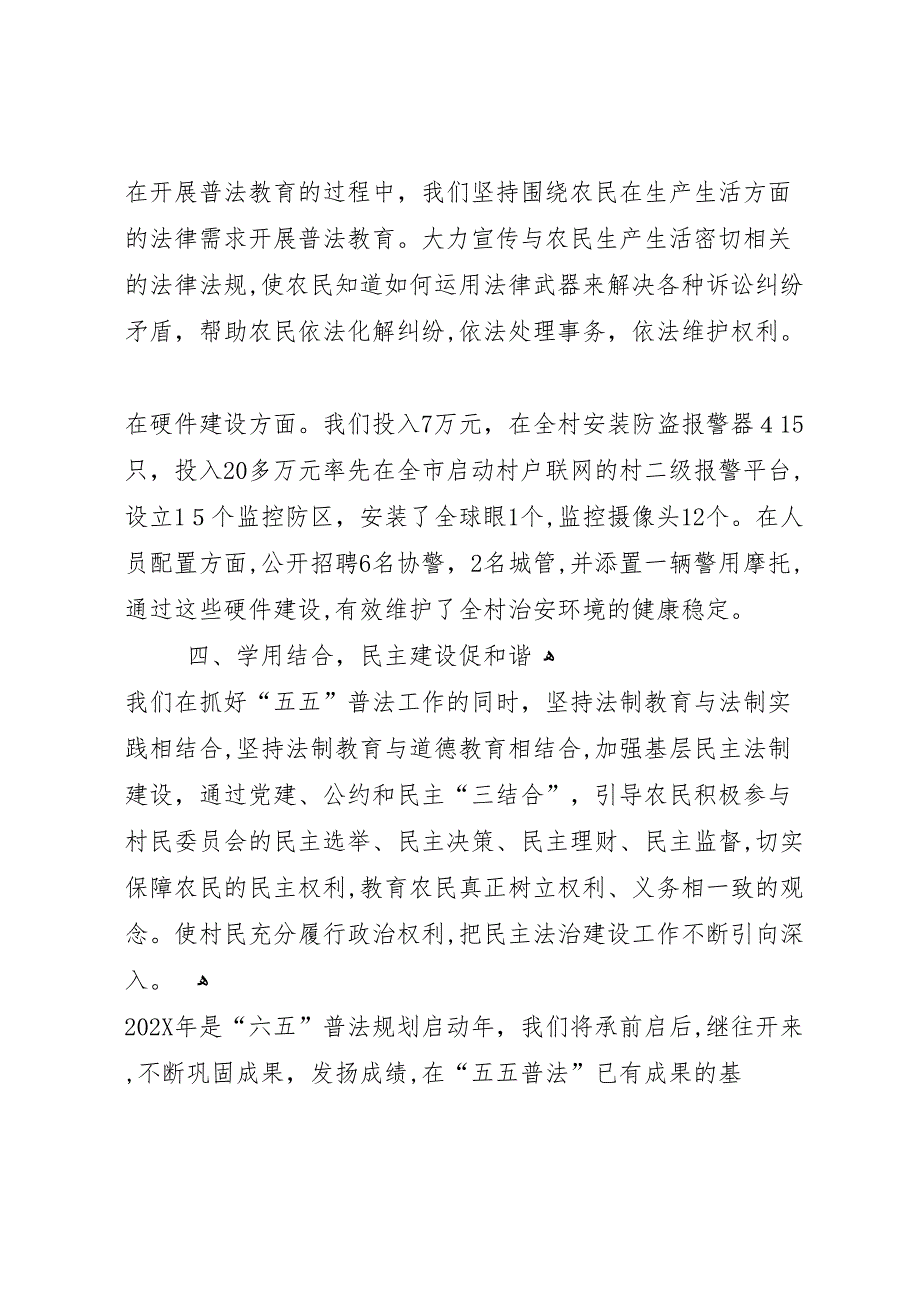 在开展普法教育的过程中，我们坚持围绕农民在生产生活方面
的法律需求开展普法教育。大力宣传与农民生产生活密切相关
的法律法规,使农民知道如何运用法律武器来解决各种诉讼纠纷
矛盾，帮助农民依法化解纠纷,依法处理事务，依法维护权利。
在硬件建设方面。我们投入7万元，在全村安装防盗报警器４15
只，投入20多万元率先在全市启动村户联网的村二级报警平台,
设立1５个监控防区，安装了全球眼1个,监控摄像头12个。在人
员配置方面,公开招聘6名协警，2名城管,并添置一辆警用摩托,
通过这些硬件建设,有效维护了全村治安环境的健康稳定。
四、学用结合，民主建设促和谐 ﻫ
我们在抓好“五五”普法工作的同时，坚持法制教育与法制实
践相结合,坚持法制教育与道德教育相结合,加强基层民主法制
建设，通过党建、公约和民主“三结合”，引导农民积极参与
村民委员会的民主选举、民主决策、民主理财、民主监督,切实
保障农民的民主权利,教育农民真正树立权利、义务相一致的观
念。使村民充分履行政治权利,把民主法治建设工作不断引向深
入。 ﻫ
202X年是“六五”普法规划启动年，我们将承前启后,继往开来
,不断巩固成果，发扬成绩,在“五五普法”已有成果的基